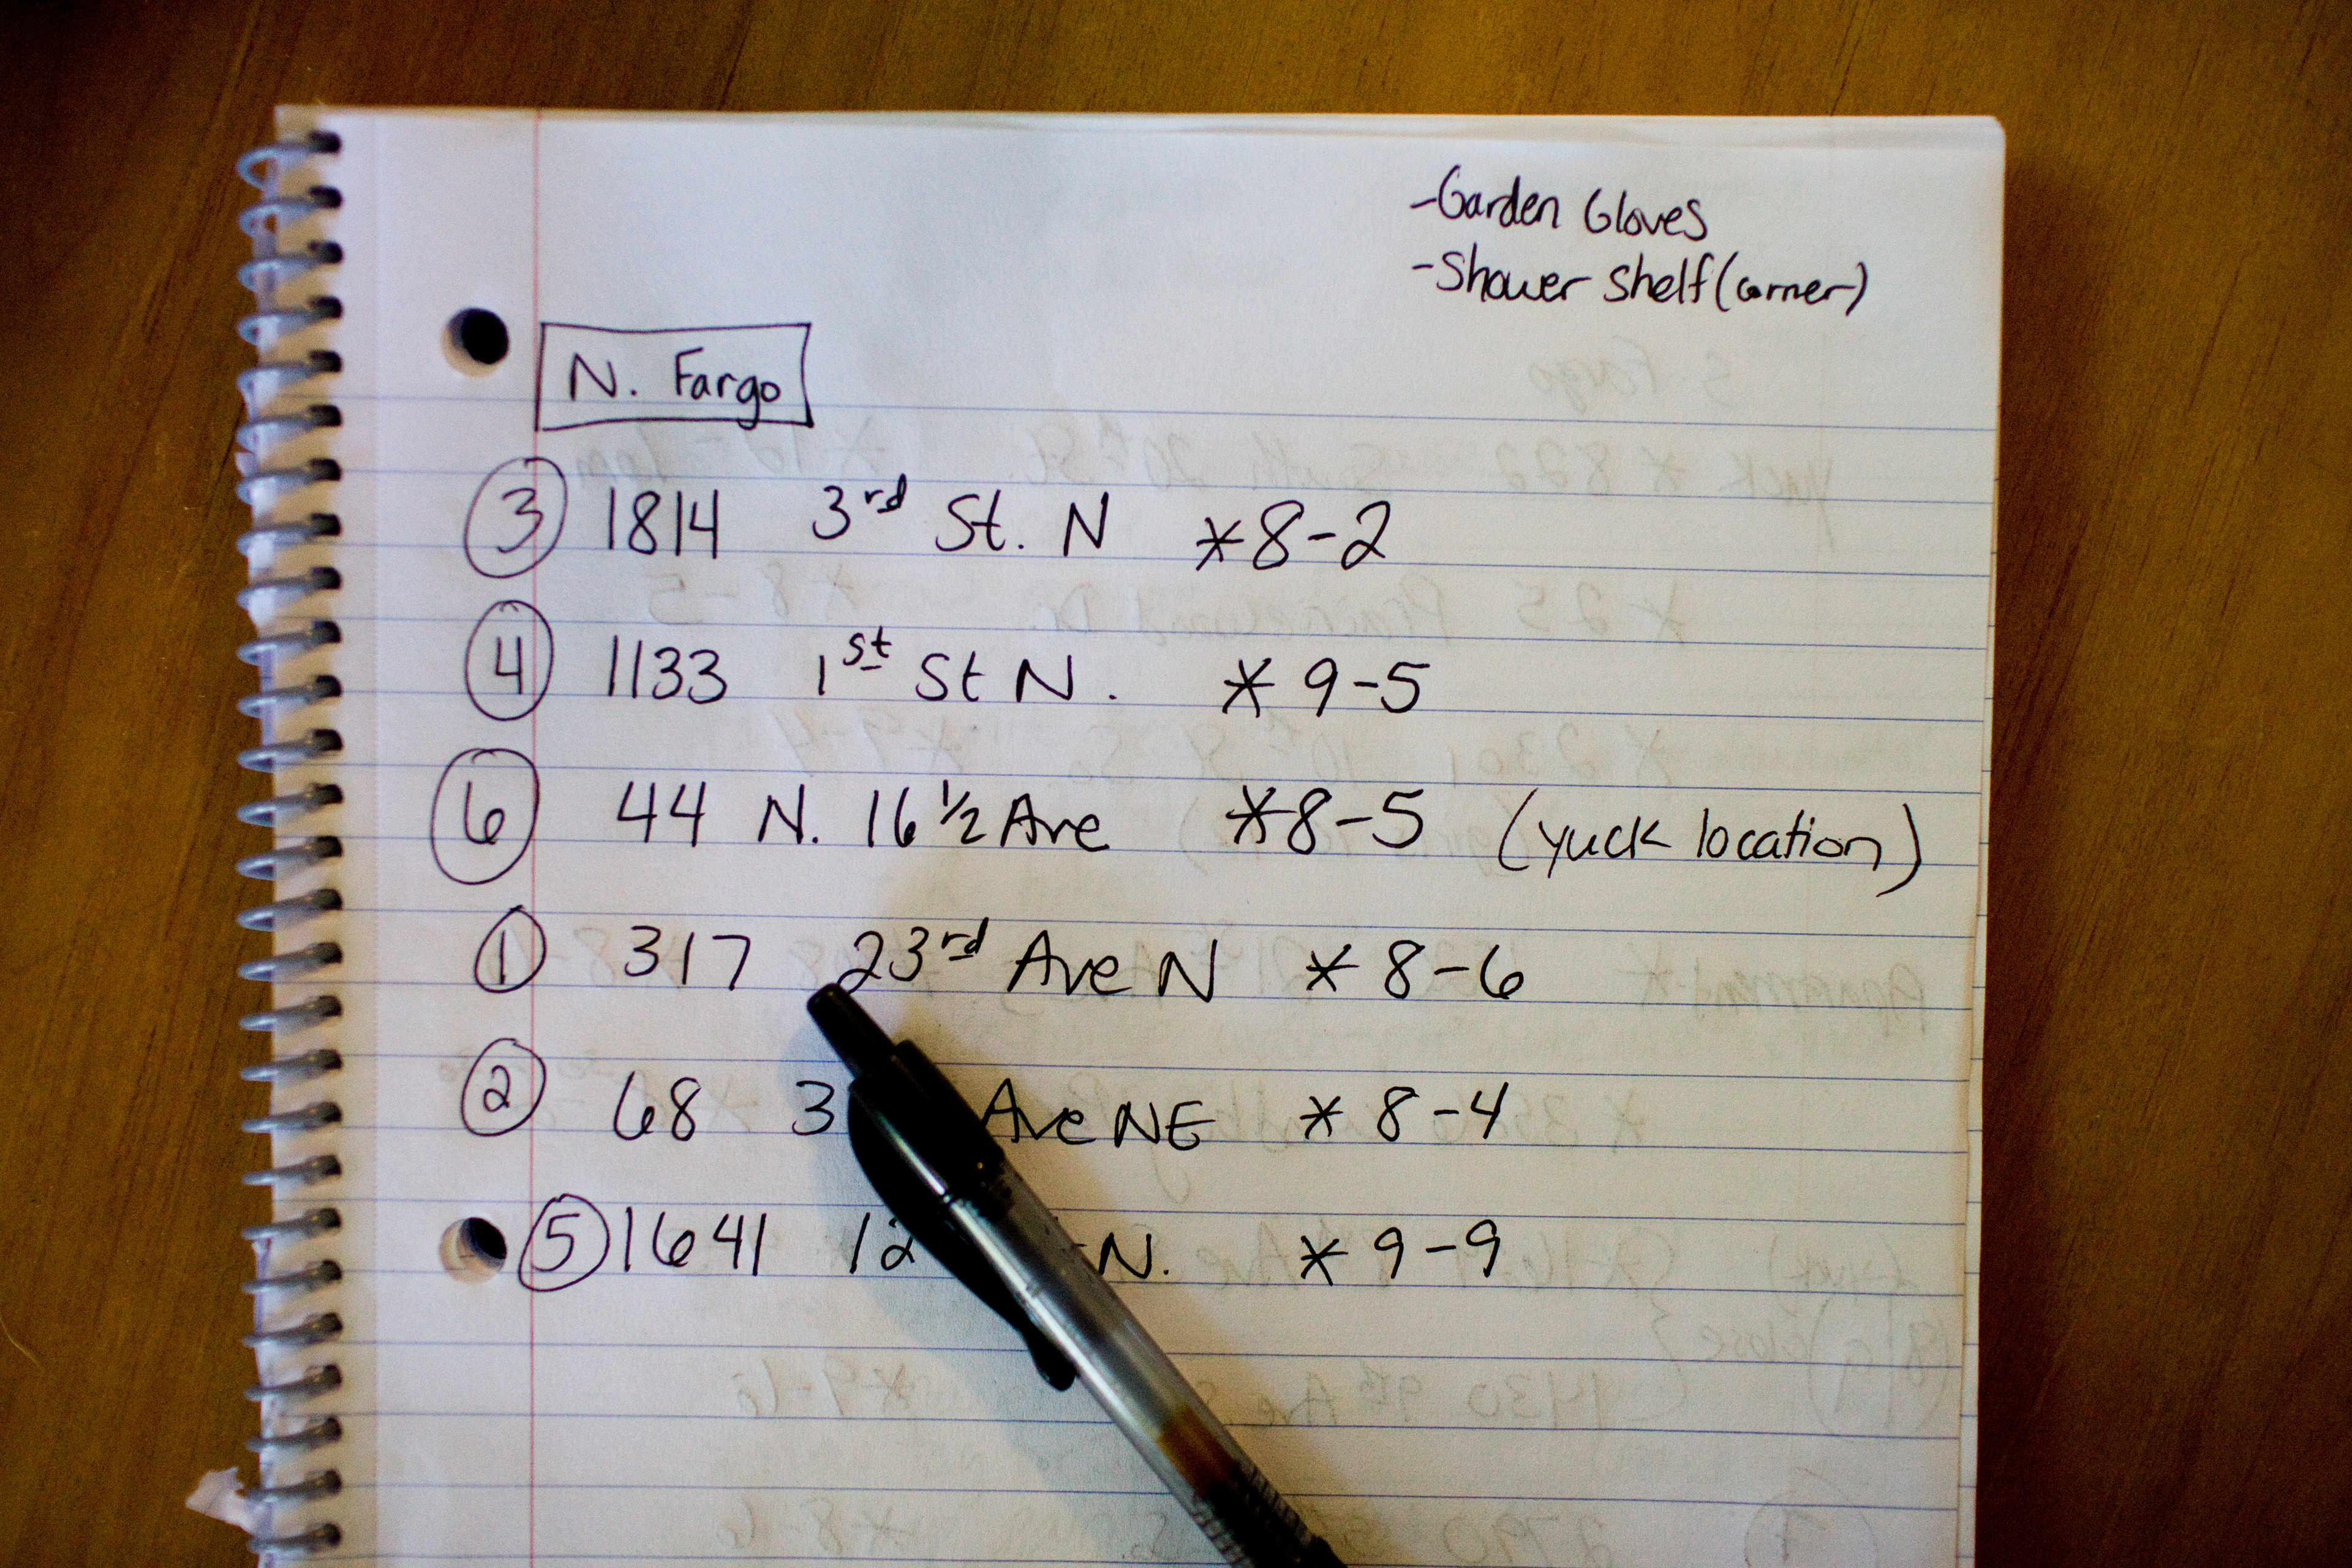 -Garden Gloves
-Shower Shelf (corner)
N. Fargo
3 1814 3rd St. N *8-2
4 1133 1st St N. *9-5
6 44 N. 16 1/2 Ave *8-5 (yuck location)
1 317 23rd Ave N *8-6
2 68 3 Ave NE *8-4
5 1641 12 N. *9-9